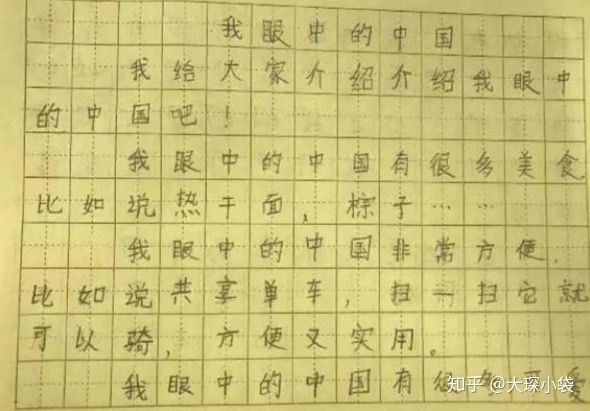 我眼中的中国
我给大家介绍介绍我眼中
的中国吧！
我眼中的中国有很多美食.
比如说热干面，棕子……
我眼中的中国非常方便.
比如说共享单车，扫一扫它就
可以骑，方便又实用。
我眼中的中国有很爱
知乎 @大琛小袋